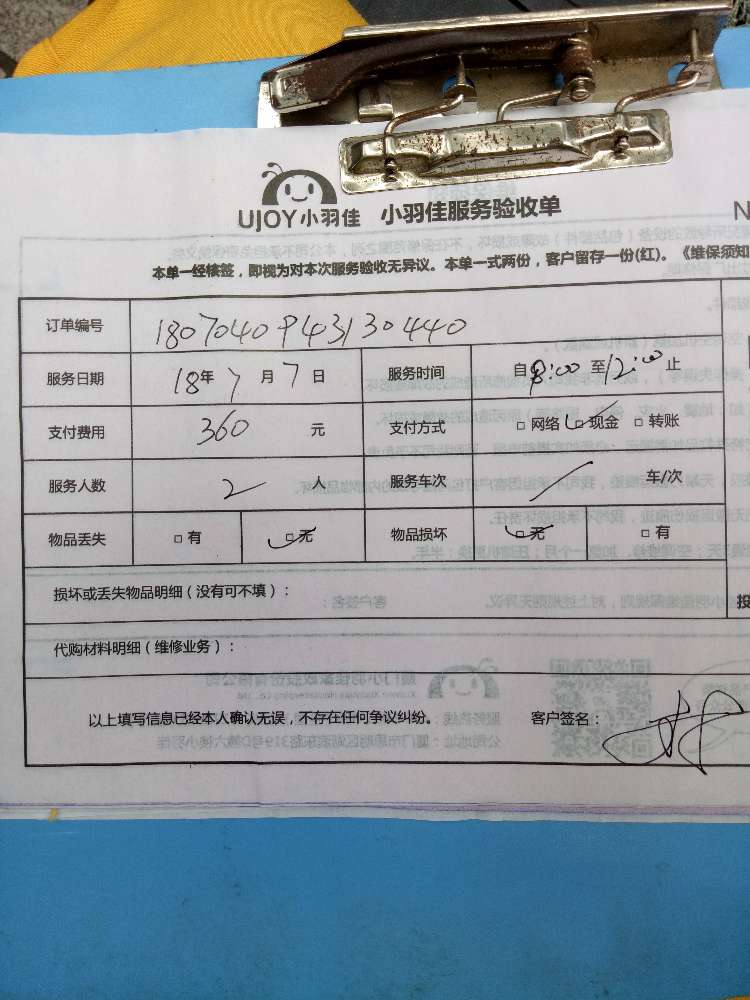 UJOY小羽佳 小羽佳服务验收单
N
本单一经核签，即视为对本次服务验收无异议。本单一式两份，客户留存一份(红)。《维保须知
订单编号 1807040943130440
服务日期 18年7月7日 服务时间 自8:00至12:00止
支付费用 360元 支付方式 □网络 □现金 □转账
服务人数 2人 服务车次 / 车/次
物品丢失 □有 □无 物品损坏 □无 □有
损坏或丢失物品明细（没有可不填）：
投
代购材料明细（维修业务）：
以上填写信息已经本人确认无误，不存在任何争议纠纷。 客户签名：